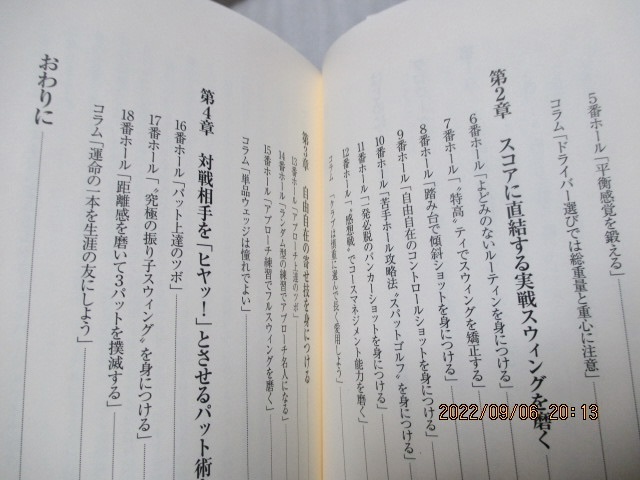 5番ホール「平衡感覚を鍛える」
コラム「ドライバー選びでは総重量と重心に注意」
第2章 スコアに直結する実戦スウィングを磨く
6番ホール「よどみのないルーティンを身につける」
7番ホール「“特高”ティでスウィングを矯正する」
8番ホール「踏み台で傾斜ショットを身につける」
9番ホール「自由自在のコントロールショットを身につける」
10番ホール「苦手ホール攻略法“スパットゴルフ”を身につける」
11番ホール「一発必脱のバンカーショットを身につける」
12番ホール「“感想戦”でコースマネジメント能力を磨く」
コラム「クラブは慎重に選んで長く愛用しよう」
第3章 自由自在の寄せ技を身につける
13番ホール「アプローチ上達のツボ」
14番ホール「ランダム型の練習でアプローチ名人になる」
15番ホール「アプローチ練習でフルスウィングを磨く」
コラム「単品ウェッジは憧れでよい」
第4章 対戦相手を「ヒヤッ!」とさせるパット術
16番ホール「パット上達のツボ」
17番ホール「“究極の振り子スウィング”を身につける」
18番ホール「距離感を磨いて3パットを撲滅する」
コラム「運命の一本を生涯の友にしよう」
おわりに
2022/09/06 20:13